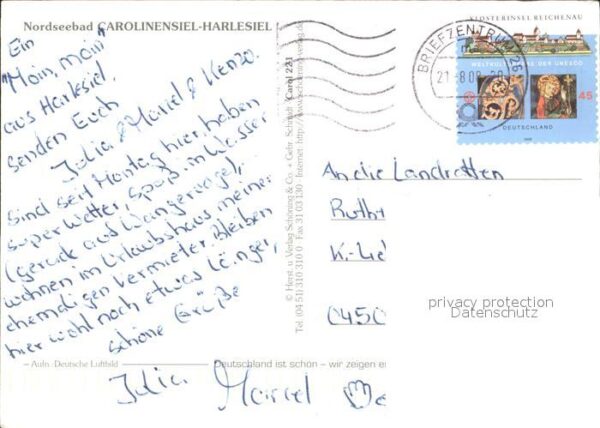 Nordseebad CAROLINENSIEL-HARLESIEL
Ein
"Moin, moin"
aus Harlesiel
senden Euch
Julia & Marcel & Kenzo.
Sind seit Montag hier, haben
super Wetter, Spaß im Wasser
(gerade auf Wangerooge),
wohnen im Urlaubshaus meiner
ehemaligen Vermieter. Bleiben
hier wohl noch etwas länger,
schöne Grüße
Julia Marcel
– Aufn.: Deutsche Luftbild
Deutschland ist schön – wir zeigen es
© Herst. u. Verlag Schöning & Co. + Gebr. Schmidt Carol 221
Tel. (04 51) 310 310 0 Fax 31 03 130 · Internet: http://www.schoening-verlag.de
KLOSTERINSEL REICHENAU
WELTKULTURERBE DER UNESCO
45
DEUTSCHLAND
BRIEFZENTRUM 26
21.-8.08
An die Landratten
0450
privacy protection
Datenschutz